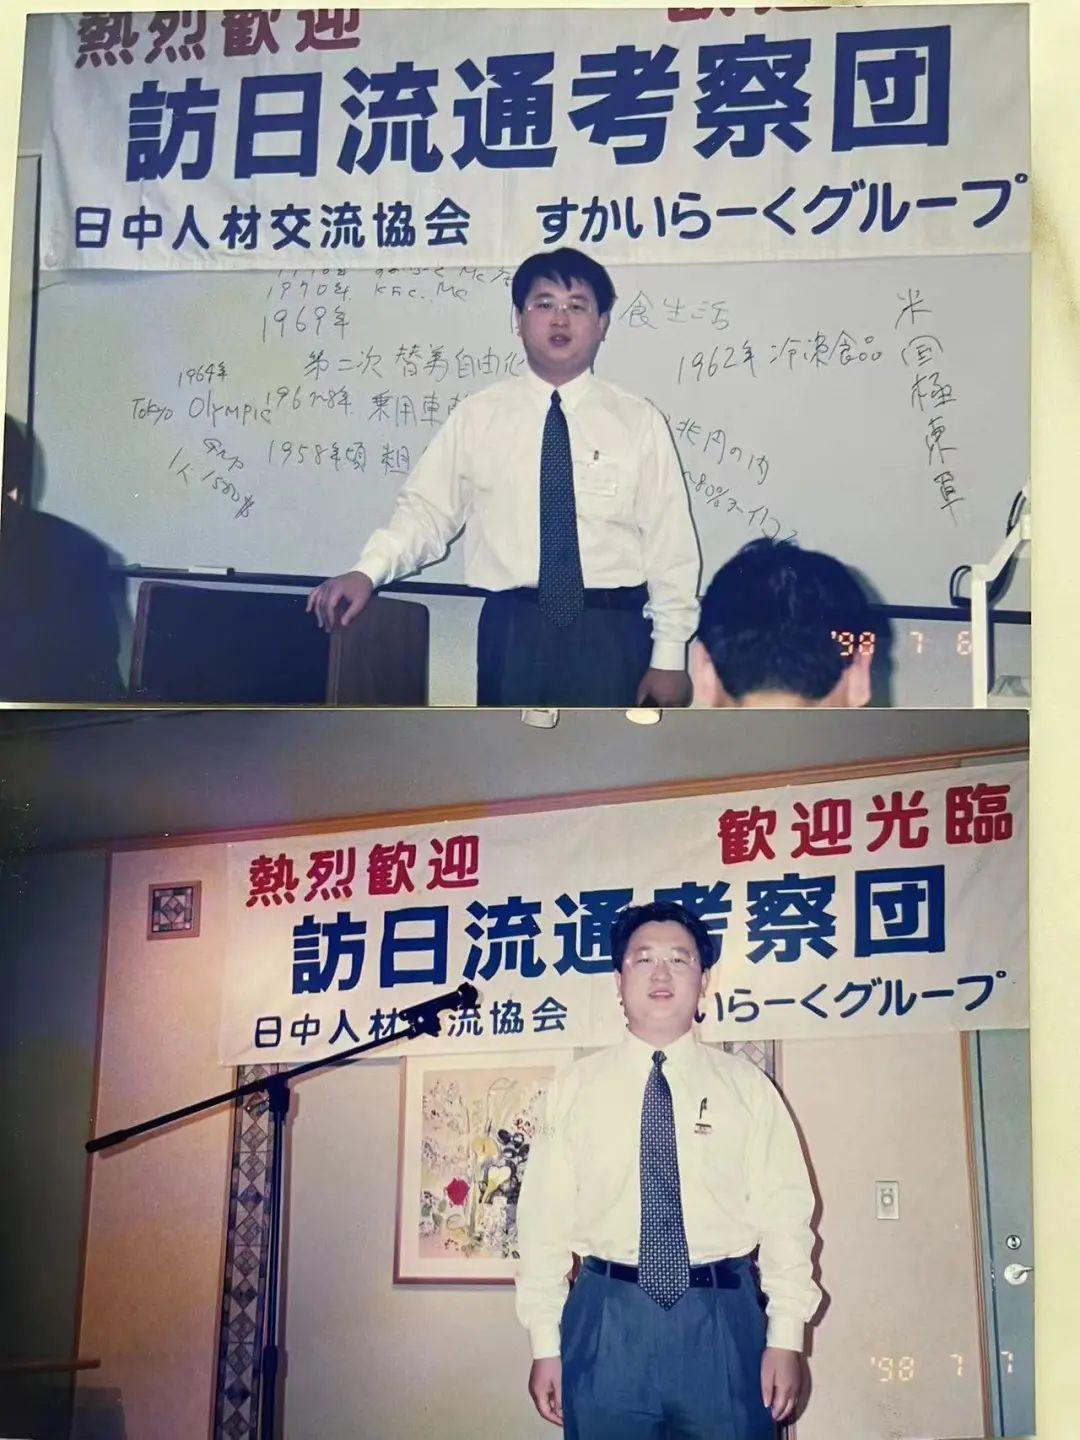 熱烈歓迎
訪日流通考察団
日中人材交流協会 すかいらーくグループ
1970年 KFC. Mc
1969年
食生活
米国極東軍
第二次 替為自由化
1962年 冷凍食品
1964年
Tokyo Olympic
1967~8年 乗用車
1958年頃 粗
兆円の内
~80%
'98 7 6
熱烈歓迎 歓迎光臨
訪日流通考察団
日中人材交流協会 いらーくグループ
'98 7 7